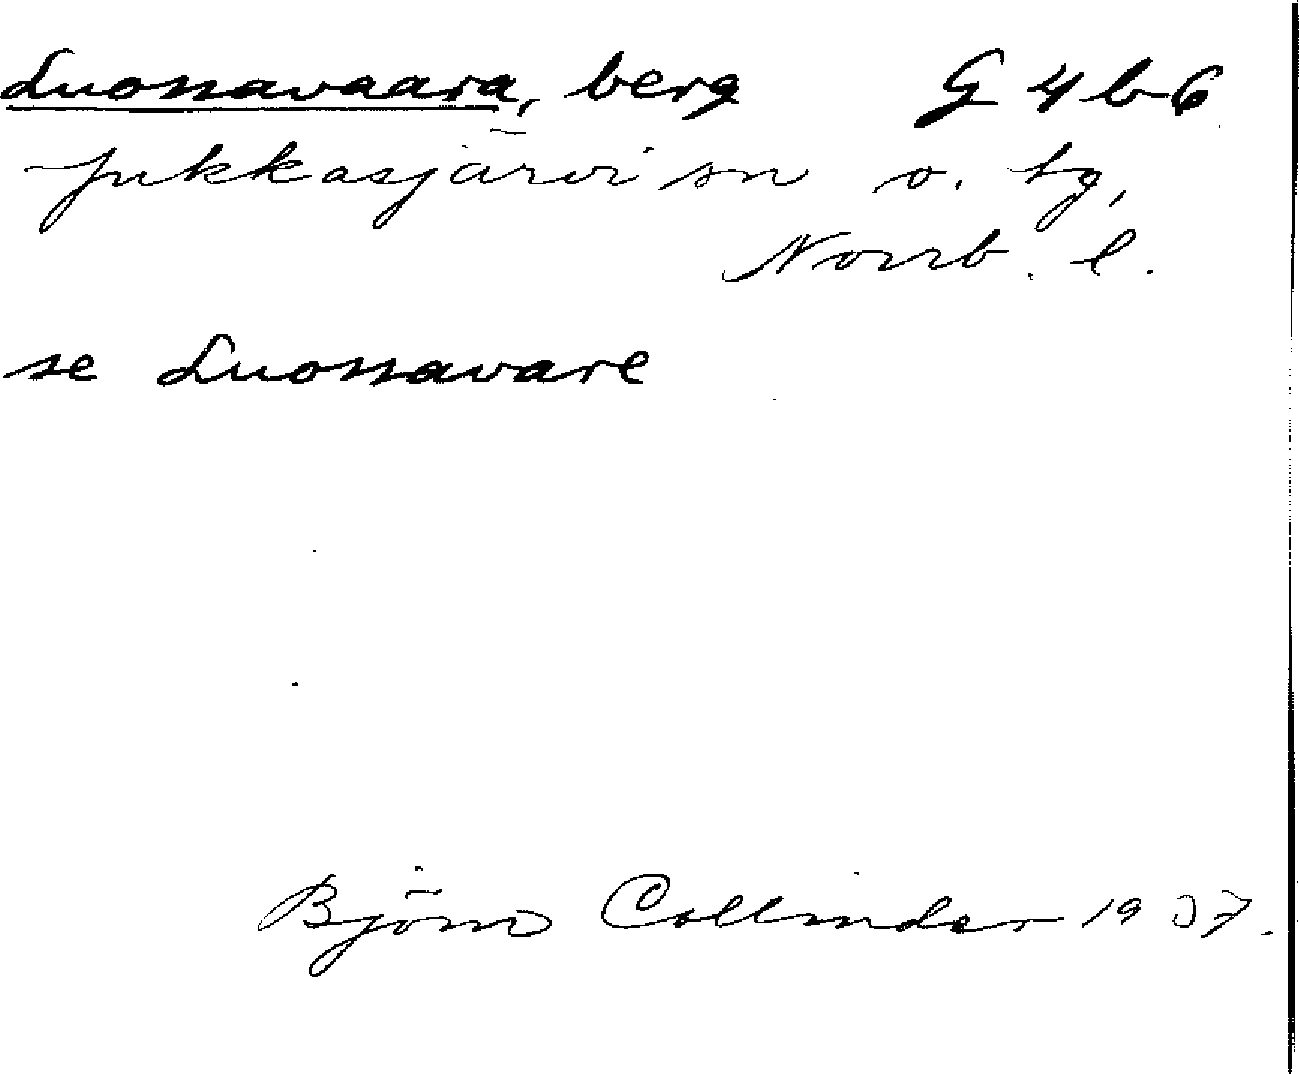 Luossavaara, berg G 4 b 6
Jukkasjärvi sn o. tg,
Norrb. l.
se Luossavare
Björn Collinder 1937.